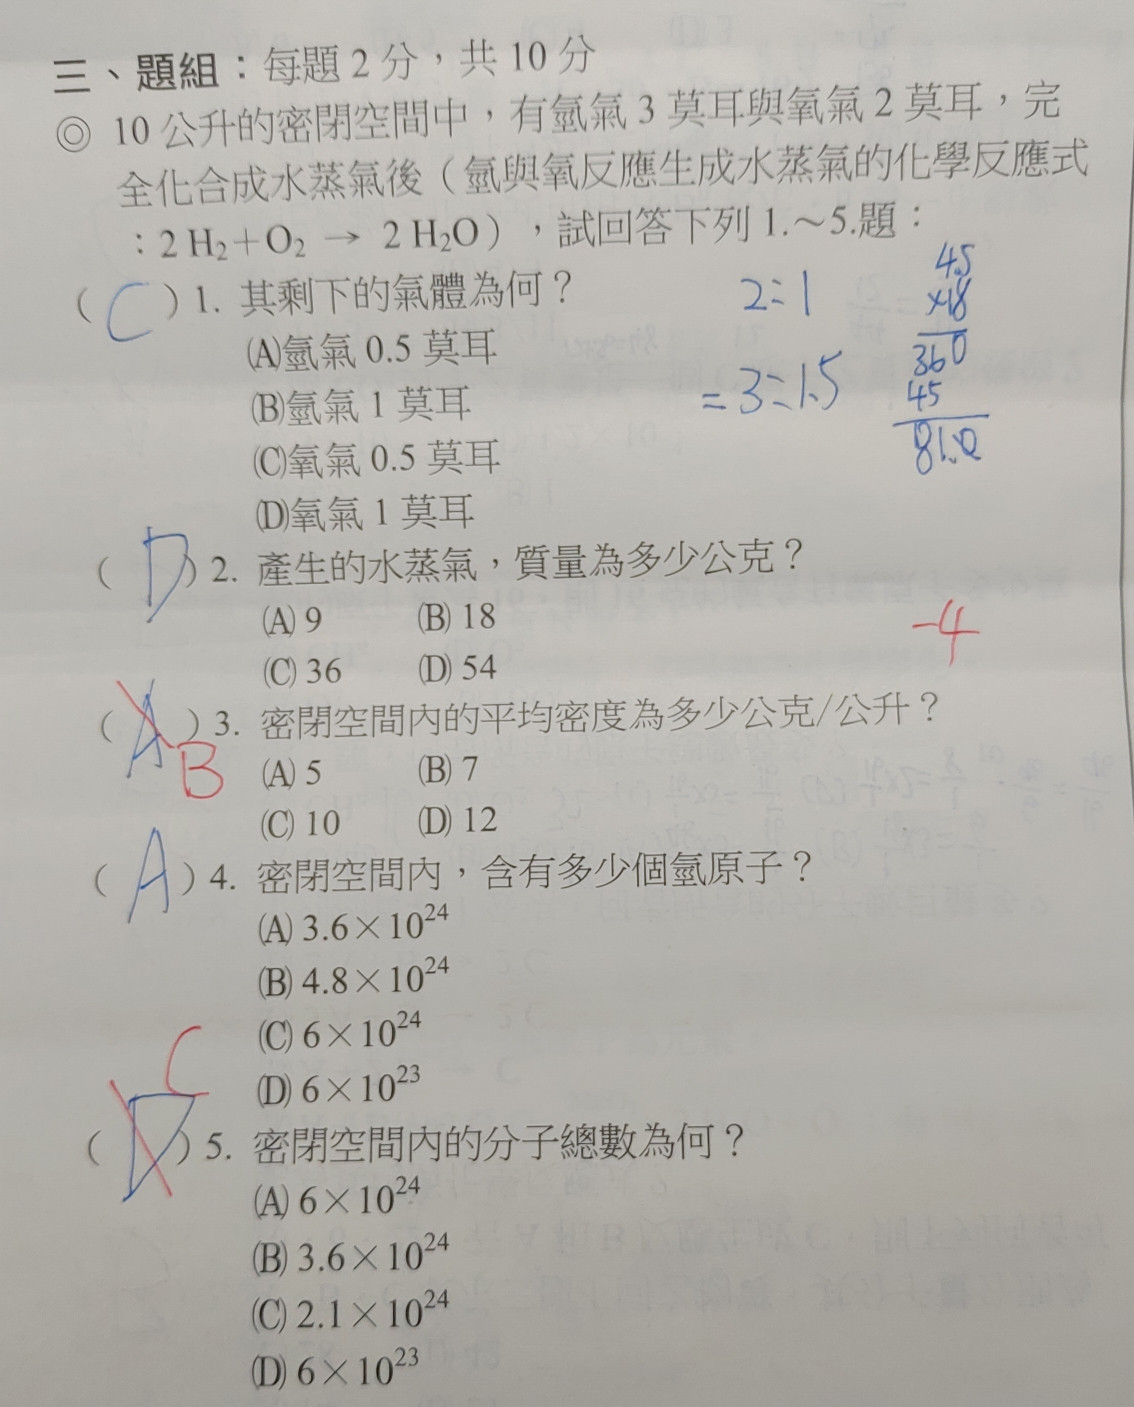 三、題組：每題 2 分，共 10 分
◎ 10 公升的密閉空間中，有氫氣 3 莫耳與氧氣 2 莫耳，完
全化合成水蒸氣後（氫與氧反應生成水蒸氣的化學反應式
：2 H₂＋O₂ → 2 H₂O），試回答下列 1.～5.題：
( C ) 1. 其剩下的氣體為何？
(A)氫氣 0.5 莫耳
(B)氫氣 1 莫耳
(C)氧氣 0.5 莫耳
(D)氧氣 1 莫耳
2:1
=3:1.5
45
×18
360
45
81.0
( D ) 2. 產生的水蒸氣，質量為多少公克？
(A) 9 (B) 18
(C) 36 (D) 54
-4
( A ) 3. 密閉空間內的平均密度為多少公克/公升？
B
(A) 5 (B) 7
(C) 10 (D) 12
( A ) 4. 密閉空間內，含有多少個氫原子？
(A) 3.6×10²⁴
(B) 4.8×10²⁴
(C) 6×10²⁴
(D) 6×10²³
C
( D ) 5. 密閉空間內的分子總數為何？
(A) 6×10²⁴
(B) 3.6×10²⁴
(C) 2.1×10²⁴
(D) 6×10²³